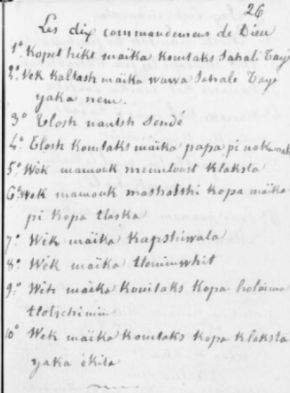 26
Les dix commandemens de Dieu
1° Kopet hikt maika komtaks Sahali Taye
2° Wek kaltash maika wawa Sahale Taye
yaka nem.
3° Tlosh nantsh Sondé
4° Tlosh komtaks maika papa pi
5° Wek mamouk memloost klaksta
6° Wek mamouk mashatshi kopa maika
pi kopa tlaska
7° Wik maika kapshwala
8° Wek maika tliminwhit
9° Wik maika komtaks kopa holoima
tlotschimin
10° Wek maika komtaks kopa klaksta
yaka ikita